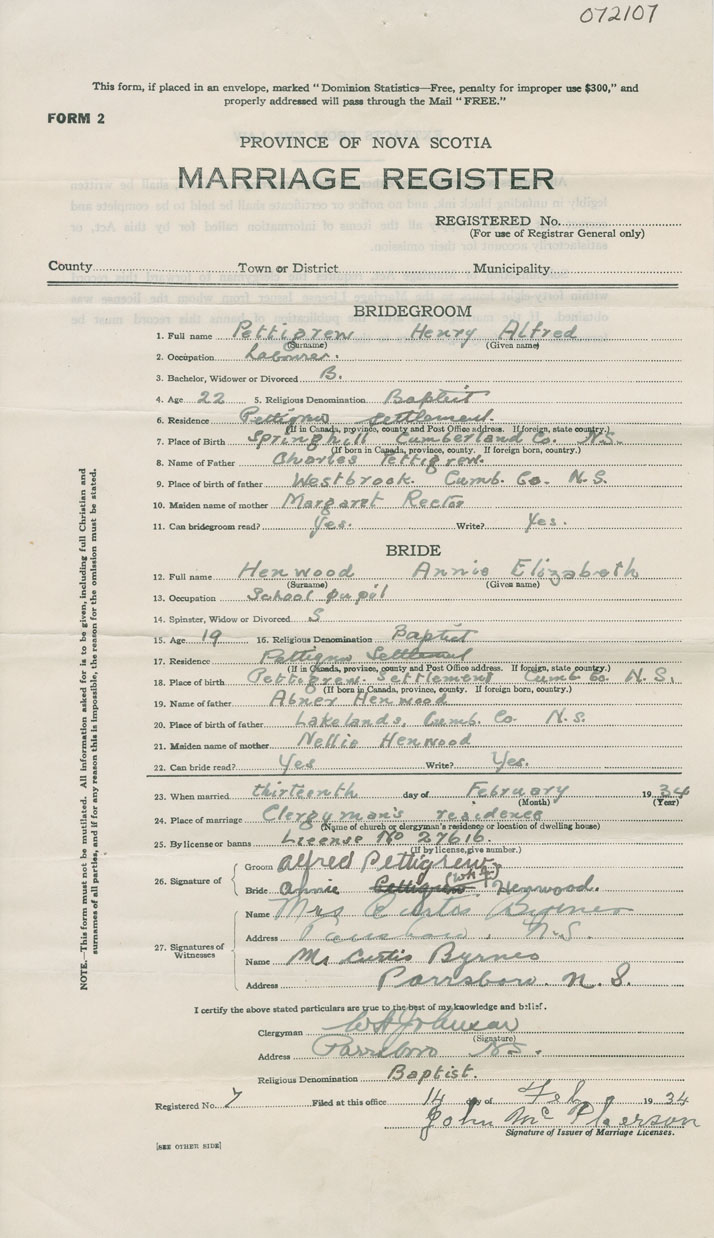 072107
This form, if placed in an envelope, marked "Dominion Statistics—Free, penalty for improper use $300," and
properly addressed will pass through the Mail "FREE."
FORM 2
PROVINCE OF NOVA SCOTIA
MARRIAGE REGISTER
REGISTERED No.
(For use of Registrar General only)
County Town or District Municipality
BRIDEGROOM
1. Full name Pettigrew Henry Alfred
(Surname) (Given name)
2. Occupation Labourer.
3. Bachelor, Widower or Divorced B.
4. Age 22 5. Religious Denomination Baptist
6. Residence Pettigrew Settlement.
(If in Canada, province, county and Post Office address. If foreign, state country.)
7. Place of Birth Springhill Cumberland Co. N.S.
(If born in Canada, province, county. If foreign born, country.)
8. Name of Father Charles Pettigrew.
9. Place of birth of father Westbrook. Cumb. Co. N.S.
10. Maiden name of mother Margaret Rector
11. Can bridegroom read? Yes. Write? Yes.
BRIDE
12. Full name Henwood Annie Elizabeth
(Surname) (Given name)
13. Occupation School pupil
14. Spinster, Widow or Divorced S
15. Age 19 16. Religious Denomination Baptist
17. Residence Pettigrew Settlement
(If in Canada, province, county and Post Office address. If foreign, state country.)
18. Place of birth Pettigrew Settlement Cumb Co. N.S.
(If born in Canada, province, county. If foreign born, country.)
19. Name of father Abner Henwood
20. Place of birth of father Lakelands, Cumb. Co N.S.
21. Maiden name of mother Nellie Henwood
22. Can bride read? Yes Write? Yes.
23. When married thirteenth day of February 1934
(Month) (Year)
24. Place of marriage Clergyman's residence
(Name of church or clergyman's residence or location of dwelling house)
25. By license or banns License No 27616.
(If by license, give number.)
26. Signature of
Groom Alfred Pettigrew
Bride Annie Pettigrew Henwood.
27. Signatures of Witnesses
Name Mrs Curtis Byrnes
Address Parrsboro, N.S.
Name Mr Curtis Byrnes
Address Parrsboro. N.S.
I certify the above stated particulars are true to the best of my knowledge and belief.
Clergyman
(Signature)
Address Parrsboro N.S.
Religious Denomination Baptist.
Registered No. 7 Filed at this office 14 day of Feb 1934
John McPherson
Signature of Issuer of Marriage Licenses.
[SEE OTHER SIDE]
NOTE.—This form must not be mutilated. All information asked for is to be given, including full Christian and
surnames of all parties, and if for any reason this is impossible, the reason for the omission must be stated.